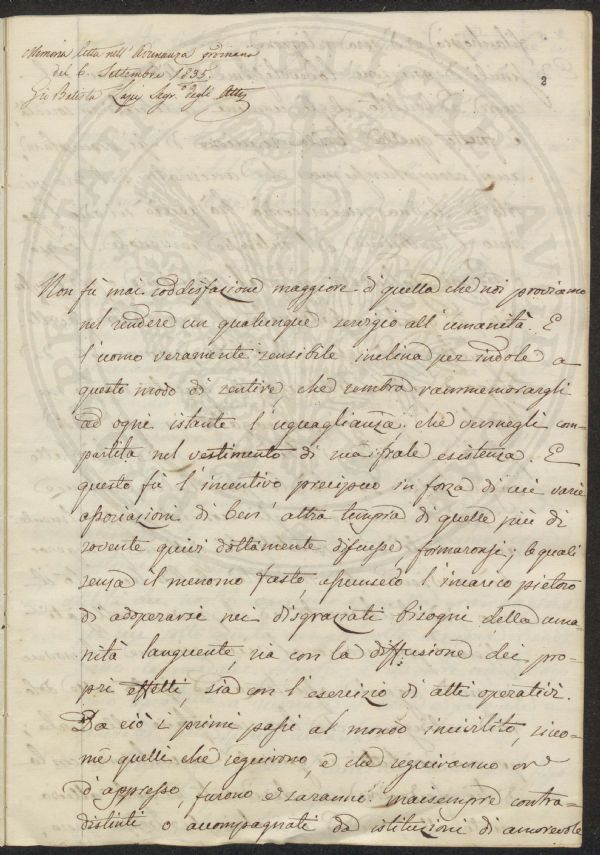 Memoria letta nell' Adunanza ordinaria
del 6. Settembre 1835.
Gio Batista Segr.o degli Atti
3
Non fù mai soddisfazione maggiore di quella che noi proviamo
nel rendere un qualunque servigio all' umanità. E
l' uomo veramente sensibile inclina per indole a
questo modo di sentire, che sembra rammemorargli
ad ogni istante l' uguaglianza, che vennegli com-
partita nel vestimento di sua frale esistenza. E
questo fù l' incentivo precipuo in forza di cui varie
associazioni di ben' altra tempra di quelle più di
sovente quivi dottamente discusse formaronsi; le quali
senza il menomo fasto, assunsero l' incarico pietoso
di adoperarsi nei disgraziati bisogni della uma-
nità languente, sia con la diffusione dei pro-
pri effetti, sia con l' esercizio di atti operativi.
Da ciò i primi passi al mondo incivilito, sico-
me quelli che seguirono, e che seguiranno or
d' appresso, furono e saranno maisempre contra-
distinti o accompagnati da istituzioni di amorevole